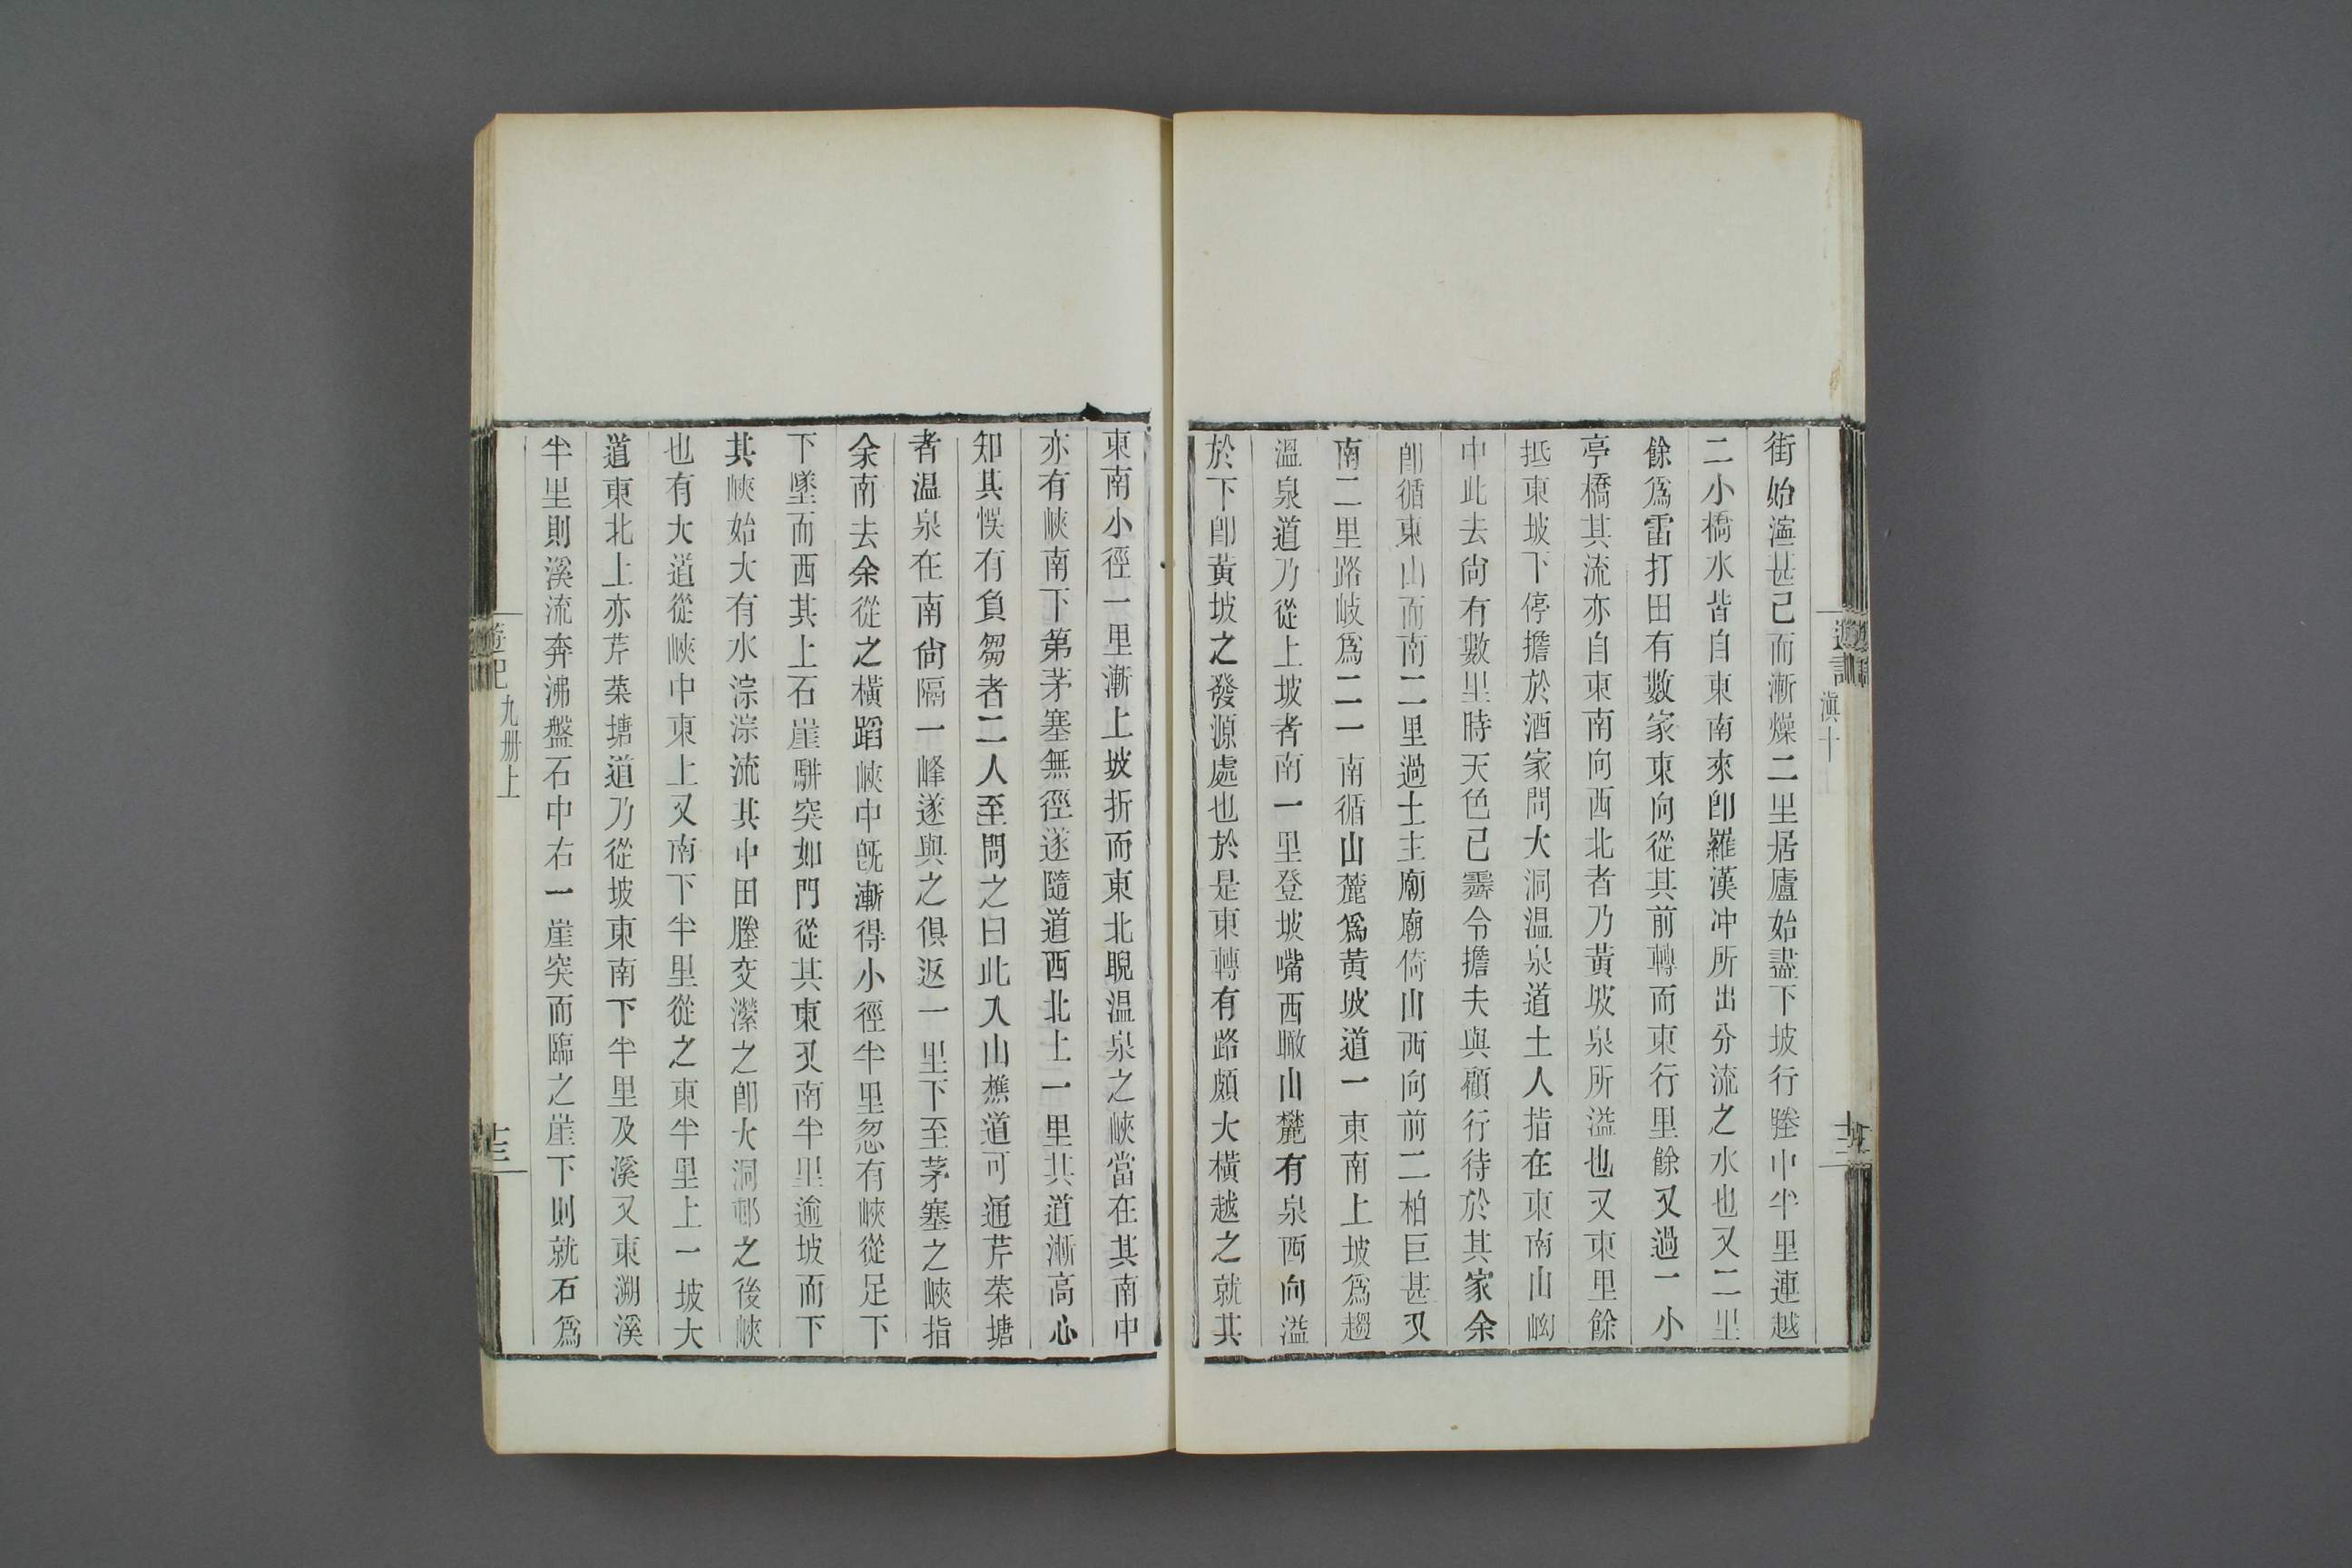 街始濘甚已而漸燥二里居廬始盡下坡行塍中半里連越
二小橋水皆自東南來卽羅漢冲所出分流之水也又二里
餘爲雷打田有數家東向從其前轉而東行里餘又過一小
亭橋其流亦自東南向西北者乃黃坡泉所溢也又東里餘
抵東坡下停擔於酒家問大洞温泉道土人指在東南山坳
中此去尙有數里時天色已霽令擔夫與顧行待於其家余
卽循東山而南二里過土主廟廟倚山西向前二柏巨甚又
南二里路岐爲二一南循山麓爲黃坡道一東南上坡爲趨
溫泉道乃從上坡者南一里登坡嘴西瞰山麓有泉西向溢
於下卽黃坡之發源處也於是東轉有路頗大橫越之就其
東南小徑一里漸上坡折而東北睨温泉之峽當在其南中
亦有峽南下第茅塞無徑遂隨道西北上一里其道漸高心
知其悞有負芻者二人至問之曰此入山樵道可通芹菜塘
者温泉在南尙隔一峰遂與之俱返一里下至茅塞之峽指
余南去余從之橫蹈峽中旣漸得小徑半里忽有峽從足下
下墜而西其上石崖駢突如門從其東又南半里逾坡而下
其峽始大有水淙淙流其中田塍交瀠之卽大洞邨之後峽
也有大道從峽中東上又南下半里從之東半里上一坡大
道東北上亦芹菜塘道乃從坡東南下半里及溪又東溯溪
半里則溪流奔沸盤石中右一崖突而臨之崖下則就石爲
遊記 滇十
遊記 九册上